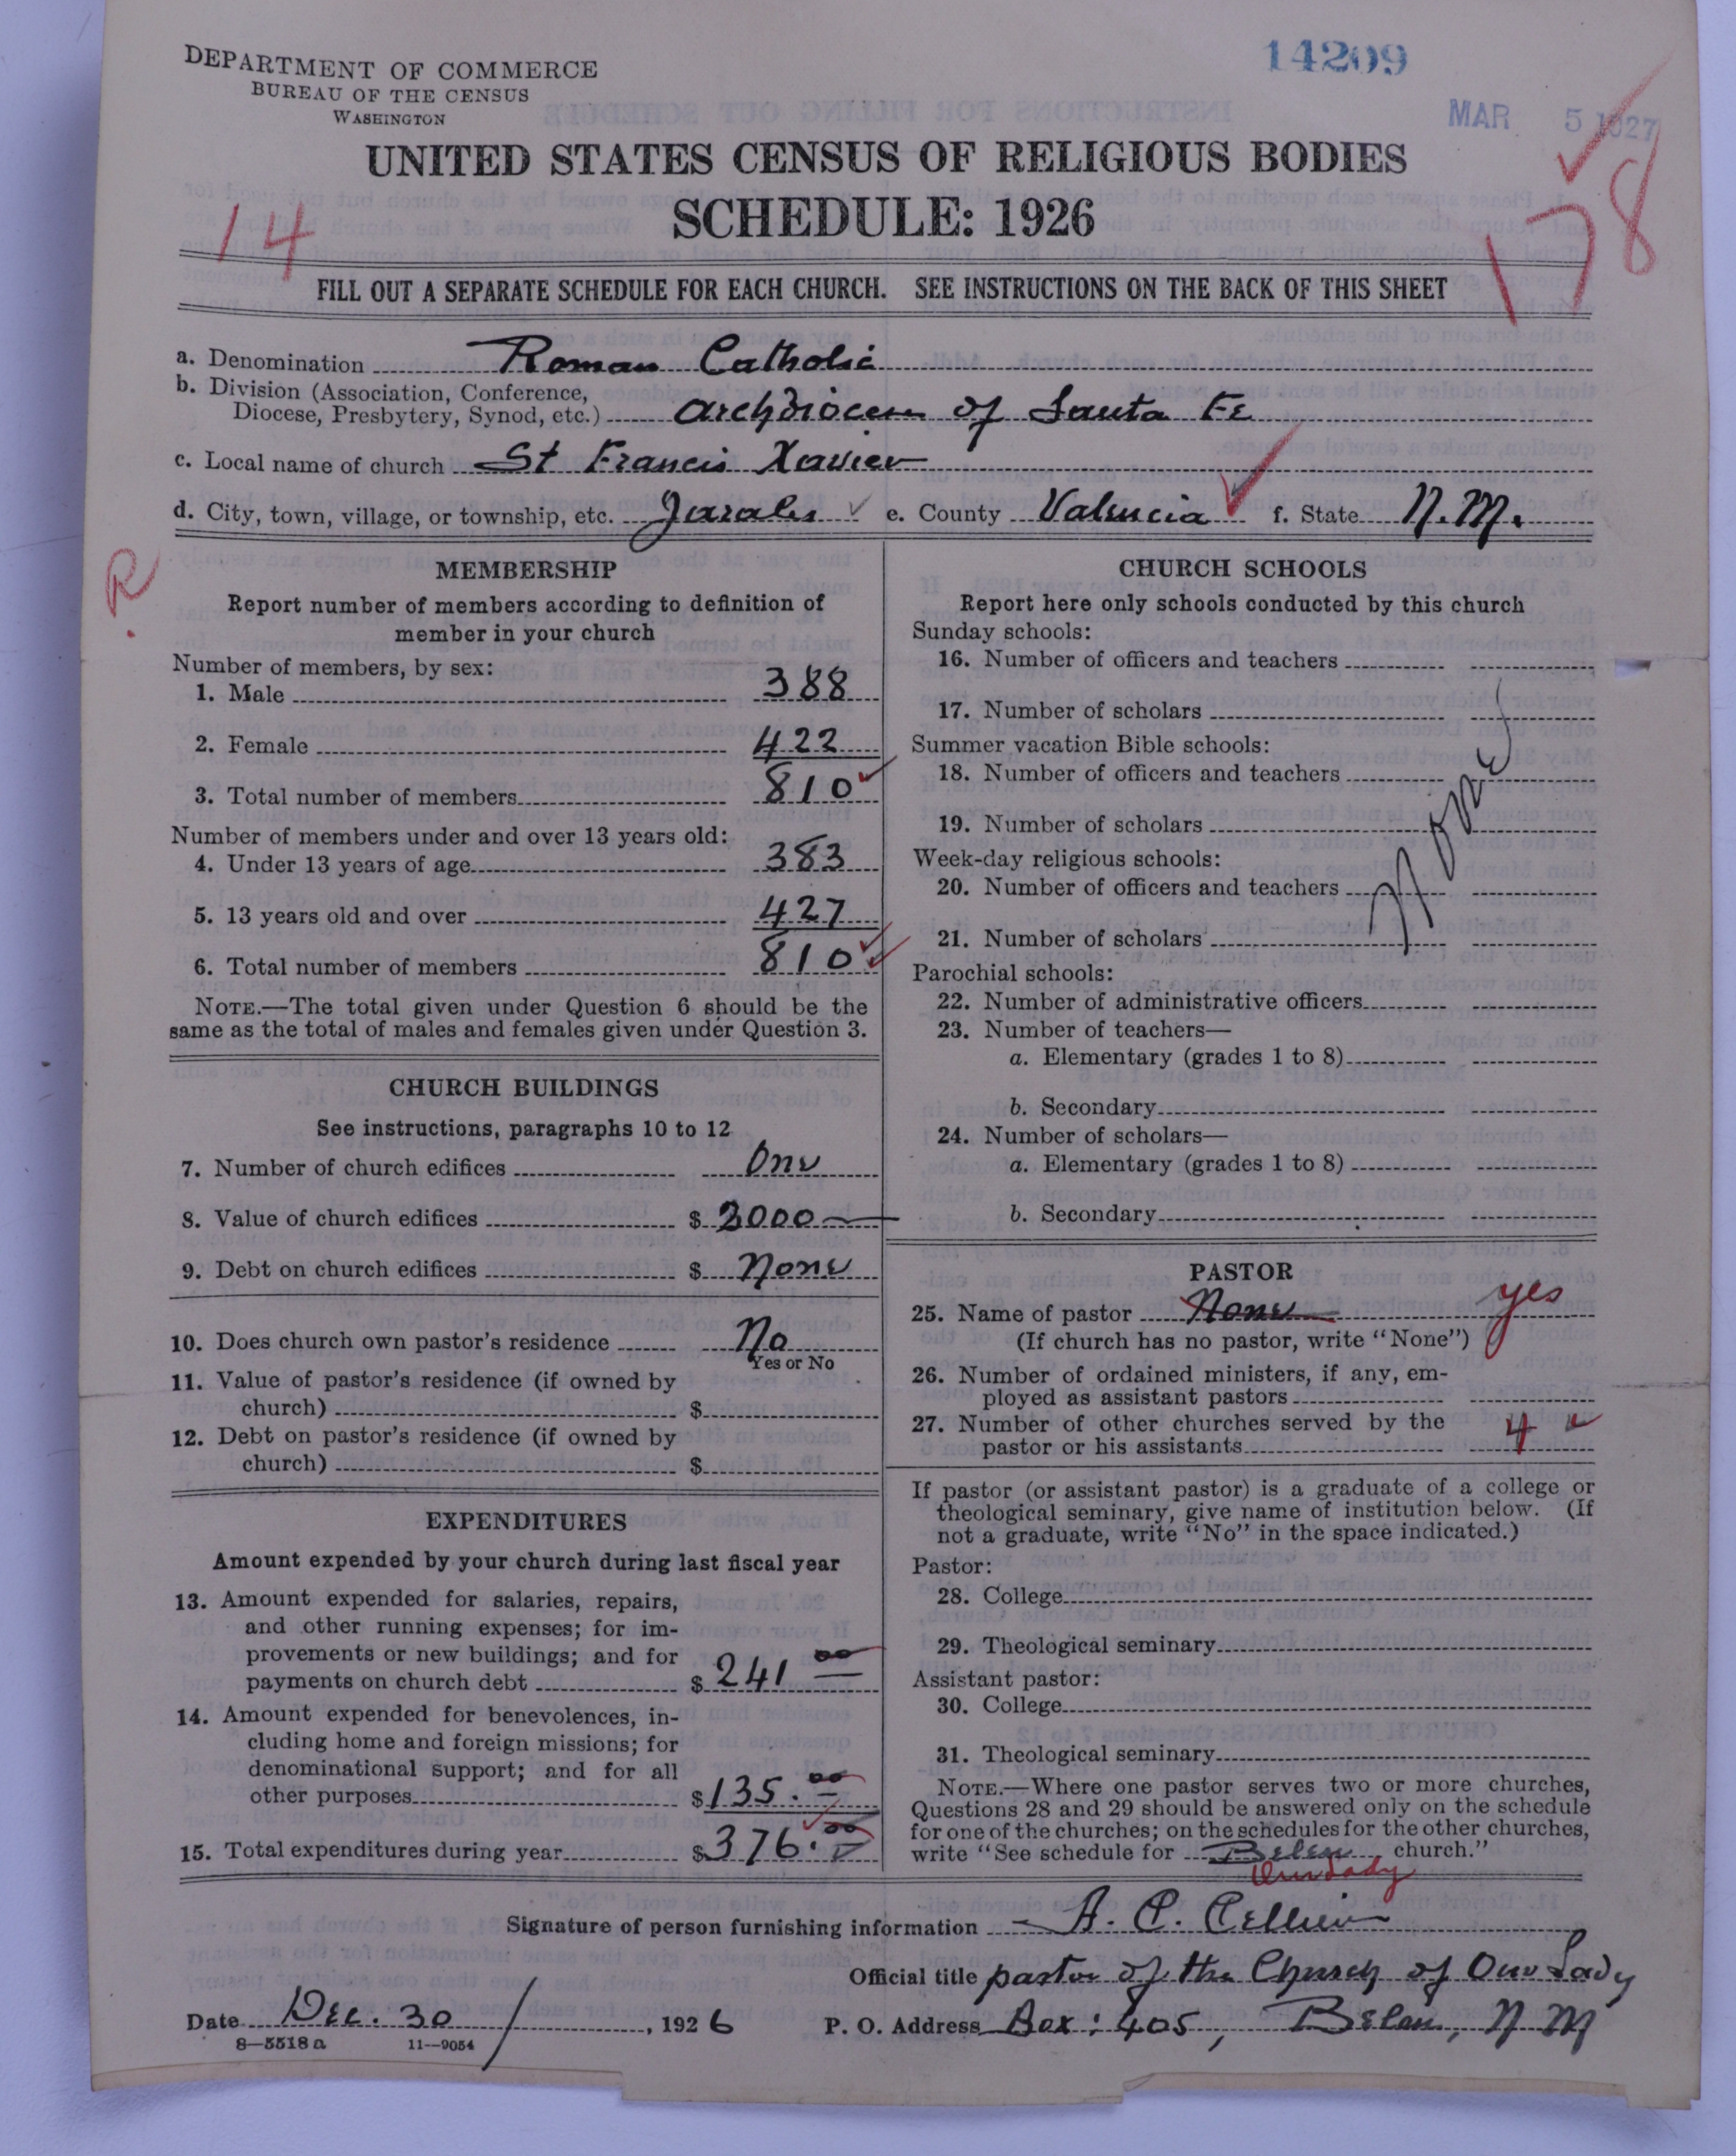 14209
DEPARTMENT OF COMMERCE
BUREAU OF THE CENSUS
WASHINGTON
MAR 5 1927
UNITED STATES CENSUS OF RELIGIOUS BODIES
SCHEDULE: 1926
14
178
FILL OUT A SEPARATE SCHEDULE FOR EACH CHURCH. SEE INSTRUCTIONS ON THE BACK OF THIS SHEET
a. Denomination Roman Catholic
b. Division (Association, Conference,
Diocese, Presbytery, Synod, etc.) Archdiocese of Santa Fe
c. Local name of church St Francis Xavier
d. City, town, village, or township, etc. Jarales e. County Valencia f. State N.M.
R.
MEMBERSHIP
Report number of members according to definition of
member in your church
Number of members, by sex:
1. Male 388
2. Female 422
3. Total number of members 810
Number of members under and over 13 years old:
4. Under 13 years of age 383
5. 13 years old and over 427
6. Total number of members 810
NOTE.—The total given under Question 6 should be the
same as the total of males and females given under Question 3.
CHURCH BUILDINGS
See instructions, paragraphs 10 to 12
7. Number of church edifices One
8. Value of church edifices $ 2000
9. Debt on church edifices $ None
10. Does church own pastor's residence No
Yes or No
11. Value of pastor's residence (if owned by
church) $
12. Debt on pastor's residence (if owned by
church) $
EXPENDITURES
Amount expended by your church during last fiscal year
13. Amount expended for salaries, repairs,
and other running expenses; for im-
provements or new buildings; and for
payments on church debt $ 241 00
14. Amount expended for benevolences, in-
cluding home and foreign missions; for
denominational support; and for all
other purposes $ 135.00
15. Total expenditures during year $ 376.00
CHURCH SCHOOLS
Report here only schools conducted by this church
Sunday schools:
16. Number of officers and teachers
17. Number of scholars
Summer vacation Bible schools:
18. Number of officers and teachers
19. Number of scholars
None
Week-day religious schools:
20. Number of officers and teachers
21. Number of scholars
Parochial schools:
22. Number of administrative officers
23. Number of teachers—
a. Elementary (grades 1 to 8)
b. Secondary
24. Number of scholars—
a. Elementary (grades 1 to 8)
b. Secondary
PASTOR
25. Name of pastor None yes
(If church has no pastor, write "None")
26. Number of ordained ministers, if any, em-
ployed as assistant pastors
27. Number of other churches served by the
pastor or his assistants 4
If pastor (or assistant pastor) is a graduate of a college or
theological seminary, give name of institution below. (If
not a graduate, write "No" in the space indicated.)
Pastor:
28. College
29. Theological seminary
Assistant pastor:
30. College
31. Theological seminary
NOTE.—Where one pastor serves two or more churches,
Questions 28 and 29 should be answered only on the schedule
for one of the churches; on the schedules for the other churches,
write "See schedule for Belen church."
Our Lady
Signature of person furnishing information A. C. Cellier
Official title pastor of the Church of Our Lady
Date Dec. 30, 1926 P. O. Address Box: 405, Belen, N M
8—5518a 11—9054